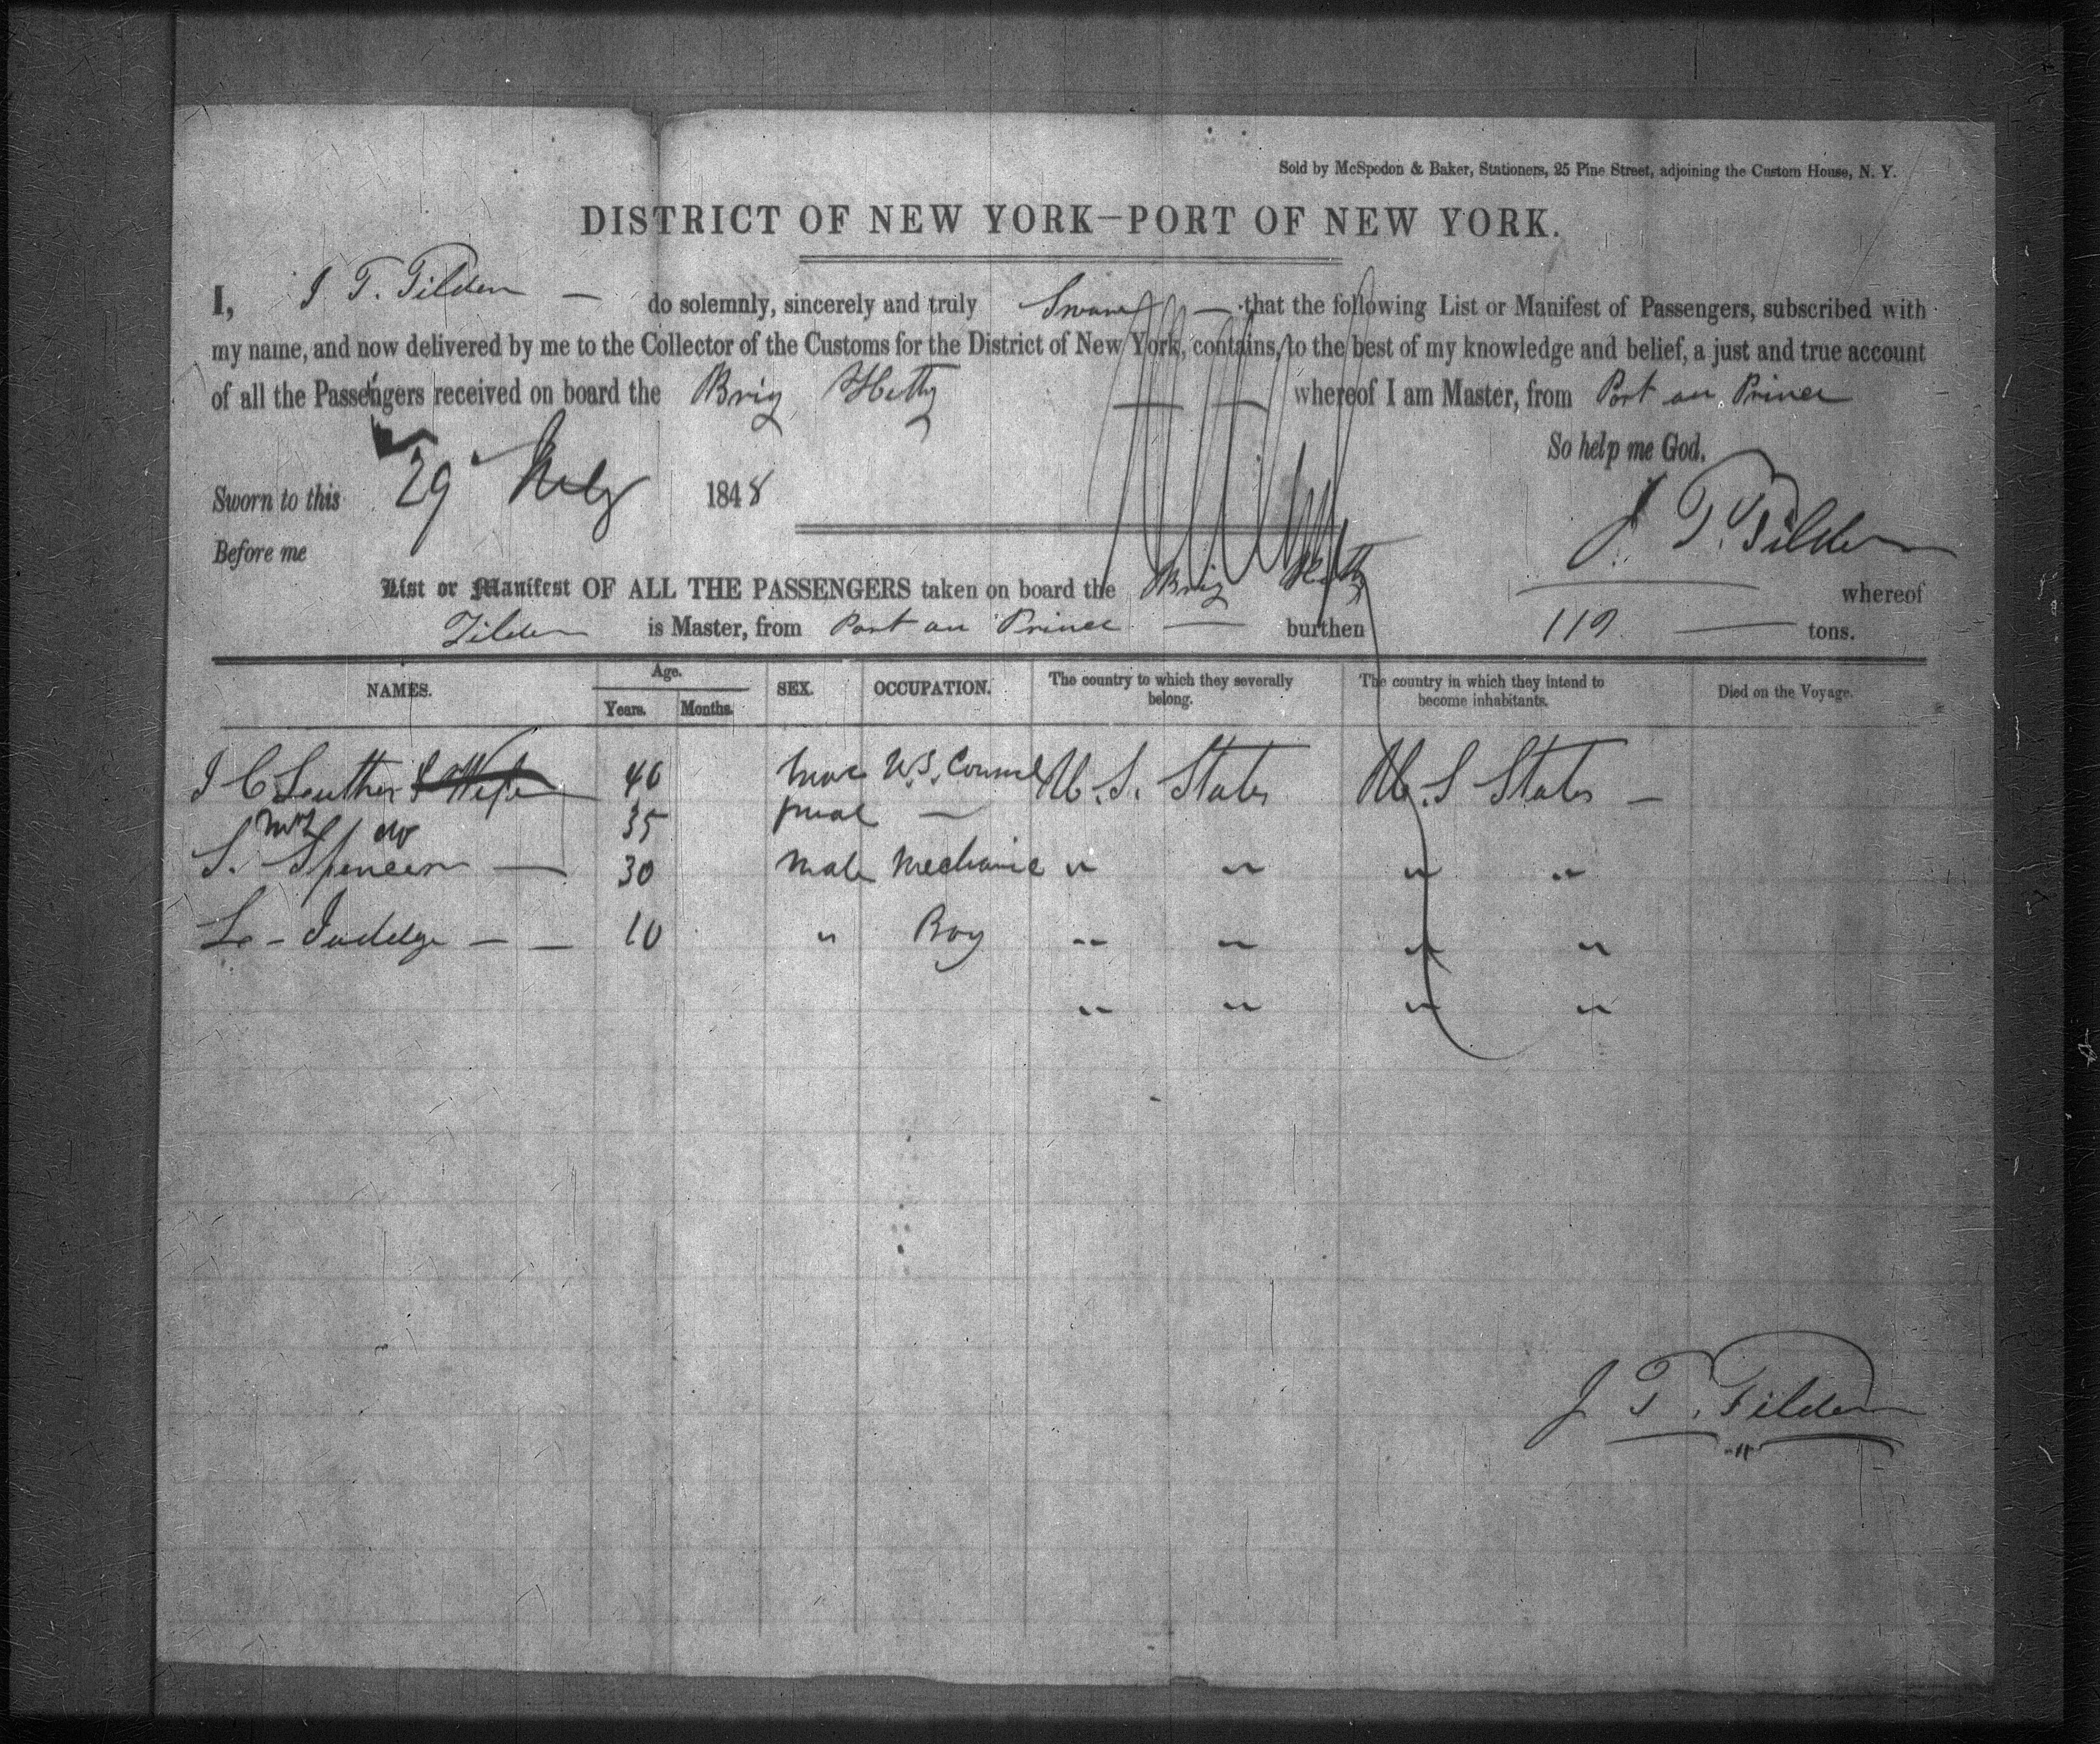 Sold by McSpedon & Baker, Stationers, 25 Pine Street, adjoining the Custom House, N. Y.
DISTRICT OF NEW YORK—PORT OF NEW YORK.
I, J T. Tilden — do solemnly, sincerely and truly Swear — that the following List or Manifest of Passengers, subscribed with
my name, and now delivered by me to the Collector of the Customs for the District of New York, contains, to the best of my knowledge and belief, a just and true account
of all the Passengers received on board the Brig Hetty — — whereof I am Master, from Port au Prince
So help me God.
Sworn to this 29 July 1848
J. T. Tilden
Before me
List or Manifest OF ALL THE PASSENGERS taken on board the Brig Hetty whereof
Tilden is Master, from Port au Prince — burthen 119 — tons.
NAMES. Age. Years. Months. SEX. OCCUPATION. The country to which they severally belong. The country in which they intend to become inhabitants. Died on the Voyage.
J C Luther & Wife 40 U.S. Consul U. S. States U. S States —
Mrs do 35 —
S. Spencer — 30 Male Mechanic " " " "
L - Juddge — — 10 " Boy " " " "
" " " "
J T. Tilden